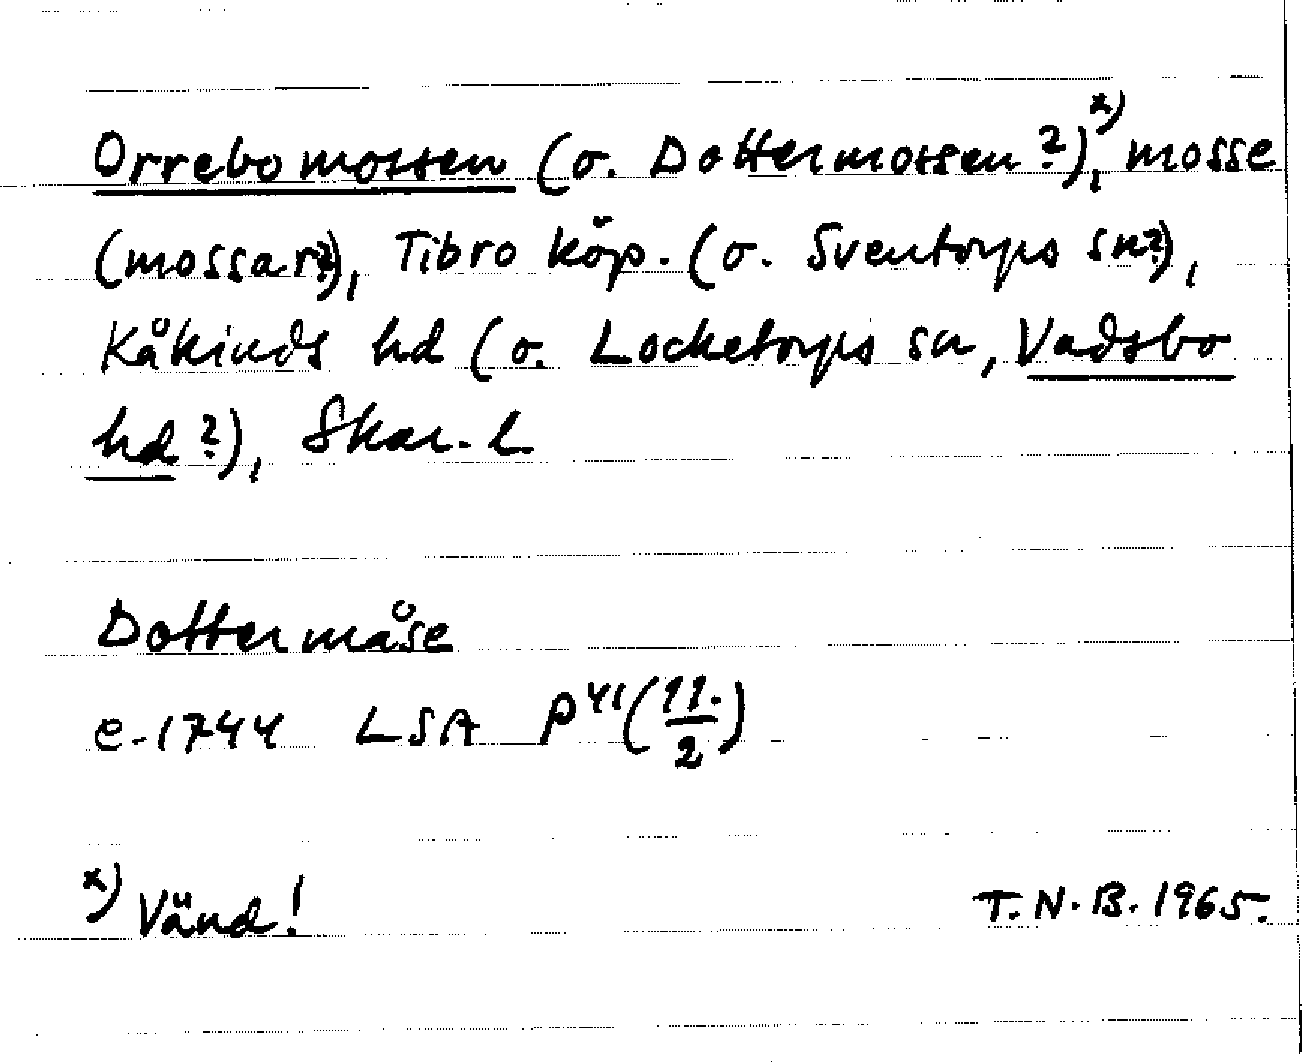 Orrebomossen (o. Dottermossen?),x) mosse
(mossar?), Tibro köp. (o. Sventorps sn?),
Kåkinds hd (o. Locketorps sn, Vadsbo
hd?), Skar. l.
Dottermåse
e. 1744 LSA P41(11./2)
x) Vänd!
T.N.B. 1965.